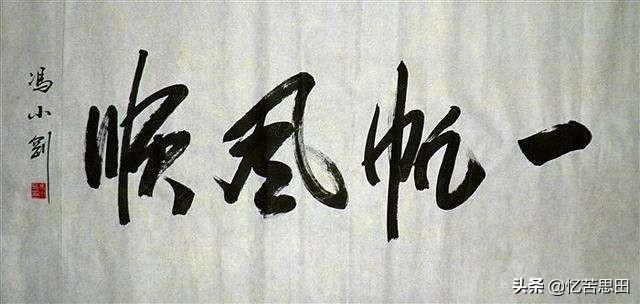 一帆风顺
冯小刚
头条 @忆苦思田